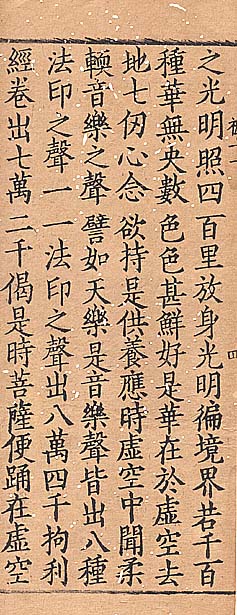 之光明照四百里放身光明徧境界若千百
種華無央數色色甚鮮好是華在於虛空去
地七仞心念欲持是供養應時虛空中聞柔
輭音樂之聲譬如天樂是音樂聲皆出八種
法印之聲一一法印之聲出八萬四千拘利
經卷出七萬二千偈是時菩薩便踊在虛空